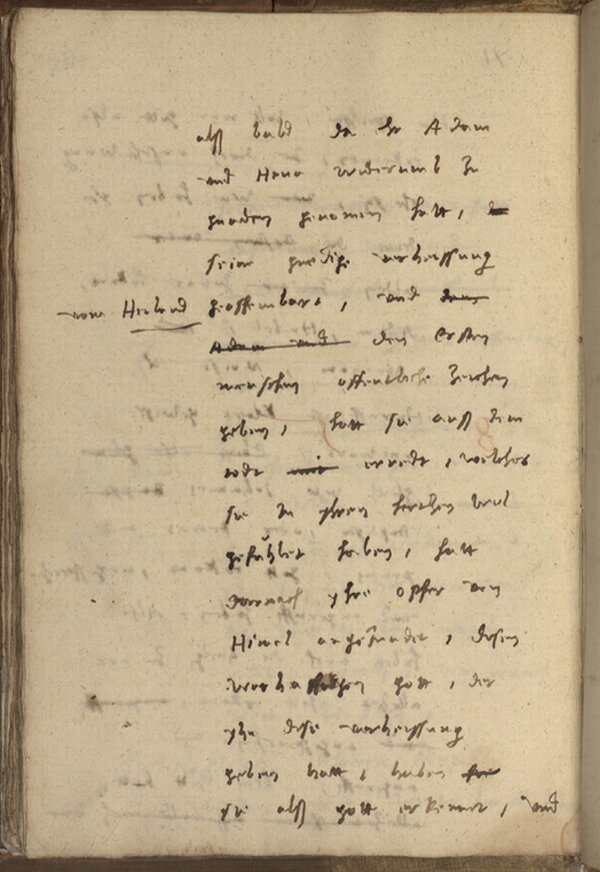 alß bald da Er Adam
und Heva widerumb zu
gnaden genomen hatt,
seine gnedige verheissung
vom Heiland geoffenbart, und den
Adam und den Ersten
menschen offentliche zeichen
geben, hatt sie auß dem
todt mit erredt, welches
sie in yhren hertzen wol
gefühlet haben, hatt
darnach yhre opfer von
Himel angezundet, disen
warhafftigen gott, der
yhn dise verheissung
geben hatt, haben
sie alß gott erkennet, und